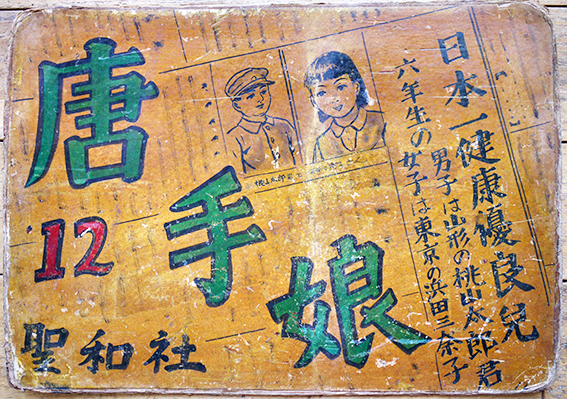 日本一健康優良児
男子は山形の桃山太郎君
六年生の女子は東京の浜田三奈子
唐手娘
12
聖和社